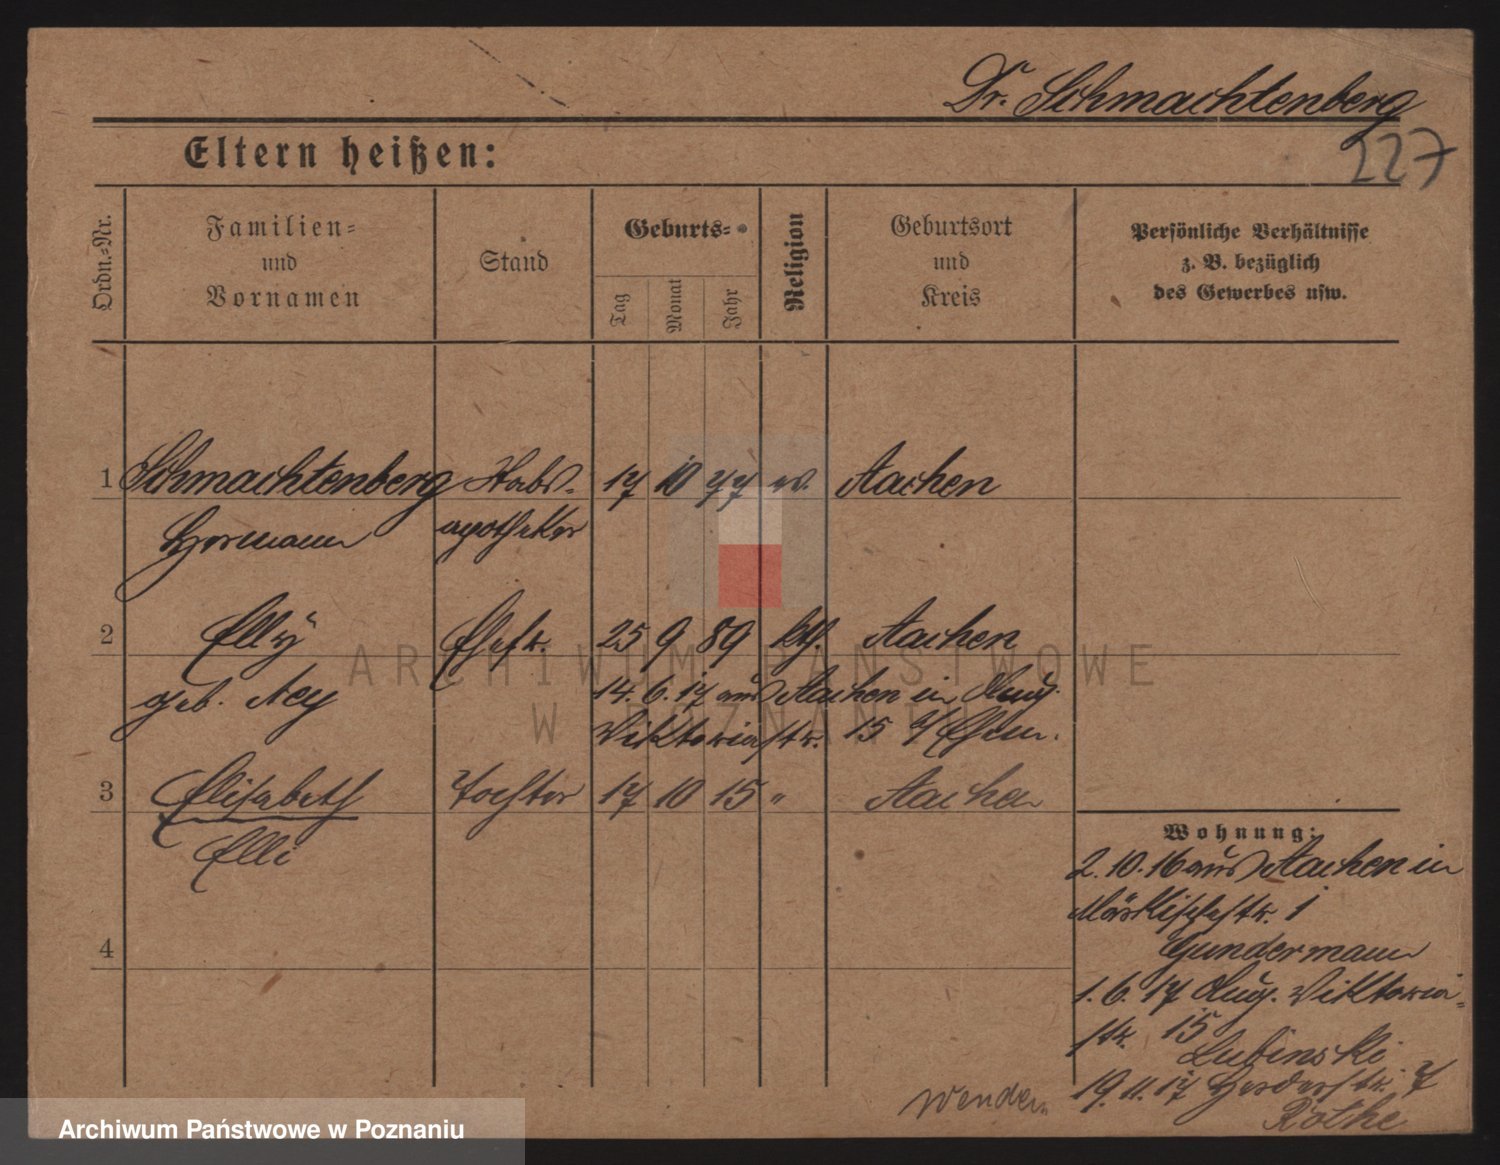 Dr. Schmachtenberg
227
Eltern heißen:
Ordn.-Nr.
Familien-
und
Vornamen
Stand
Geburts-
Tag
Monat
Jahr
Religion
Geburtsort
und
Kreis
Persönliche Verhältnisse
z. B. bezüglich
des Gewerbes usw.
1 Schmachtenberg Stabs- 17 10 77 Aachen
Hermann apotheker
2 Elly Ehefr. 25 9 89 kth. Aachen
geb. Ney 14. 6. 17 aus Aachen in Aug.
Viktoriastr. 15 z/ Ehem.
3 Elisabeth Tochter 17 10 15 " Aachen
Elli
4
Wohnung:
2. 10. 16 aus Aachen in
Märkischestr. 1
Gundermann
1. 6. 17 Aug. Viktoria-
str. 15
Lubinski
19. 11. 17 Herderstr. 7
Rothe
Wenden
ARCHIWUM PAŃSTWOWE
W POZNANIU
Archiwum Państwowe w Poznaniu